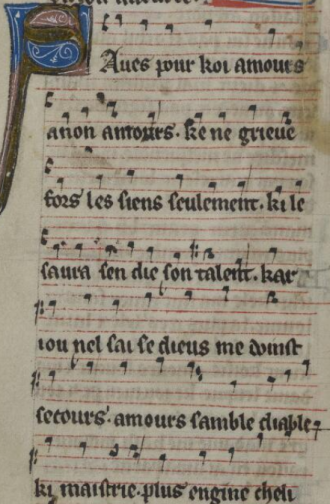 Saues pour koi amours
anon amours. ke ne grieue
fors les siens seulement. ki le
saura sen die son talent. kar
iou nel sai se dieus me doinst
secours. amours samble diable
ki maistrie. plus engine cheli